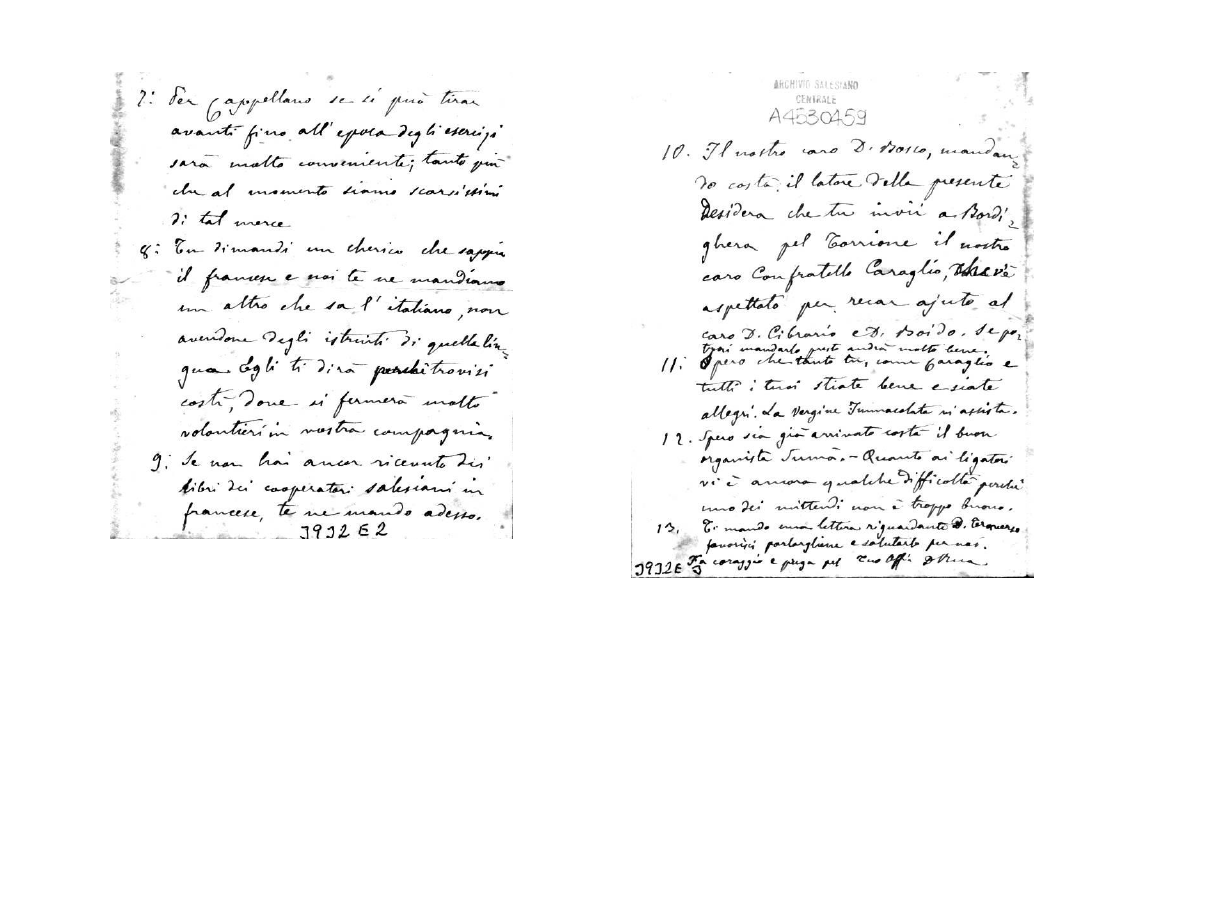 7: Per Cappellano se si può tirar
avanti fino all' epoca degli esercizi
sarà molto conveniente; tanto più
che al momento siamo scarsissimi
di tal merce
8: Tu dimandi un cherico che sappia
il francese e noi te ne mandiamo
un altro che sa l' italiano, non
avendone degli istruiti di quella lin=
gua. Egli ti dirà perchè trovisi
costà, dove si fermerà molto
volontieri in vostra compagnia.
9: Se non hai ancor ricevuto dei
libri dei cooperatori salesiani in
francese, te ne mando adesso.
J9J2 E 2
ARCHIVIO SALESIANO
CENTRALE
A4530459
10. Il nostro caro D. Bosco, mandan=
do costà il latore della presente
Desidera che tu invii a Bordi=
ghera pel Torrione il nostro
caro Confratello Caraglio, che v'è
aspettato per recar ajuto al
caro D. Cibrario e D. Boido. Se po=
trai mandarlo presto andrà molto bene.
11: Spero che tanto tu, come Caraglio e
tutti i tuoi stiate bene e siate
allegri. La Vergine Immacolata vi assista.
12. Spero sia già arrivato costà il buon
organista .- Quanto ai ligatori
vi è ancora qualche difficoltà perchè
uno dei mittendi non è troppo buono.
13. Ti mando una lettera riguardante D.
favorisci parlargliene e salutarlo per noi.
Fa coraggio e prega pel Tuo Aff. D Rua
J9J2 E 3